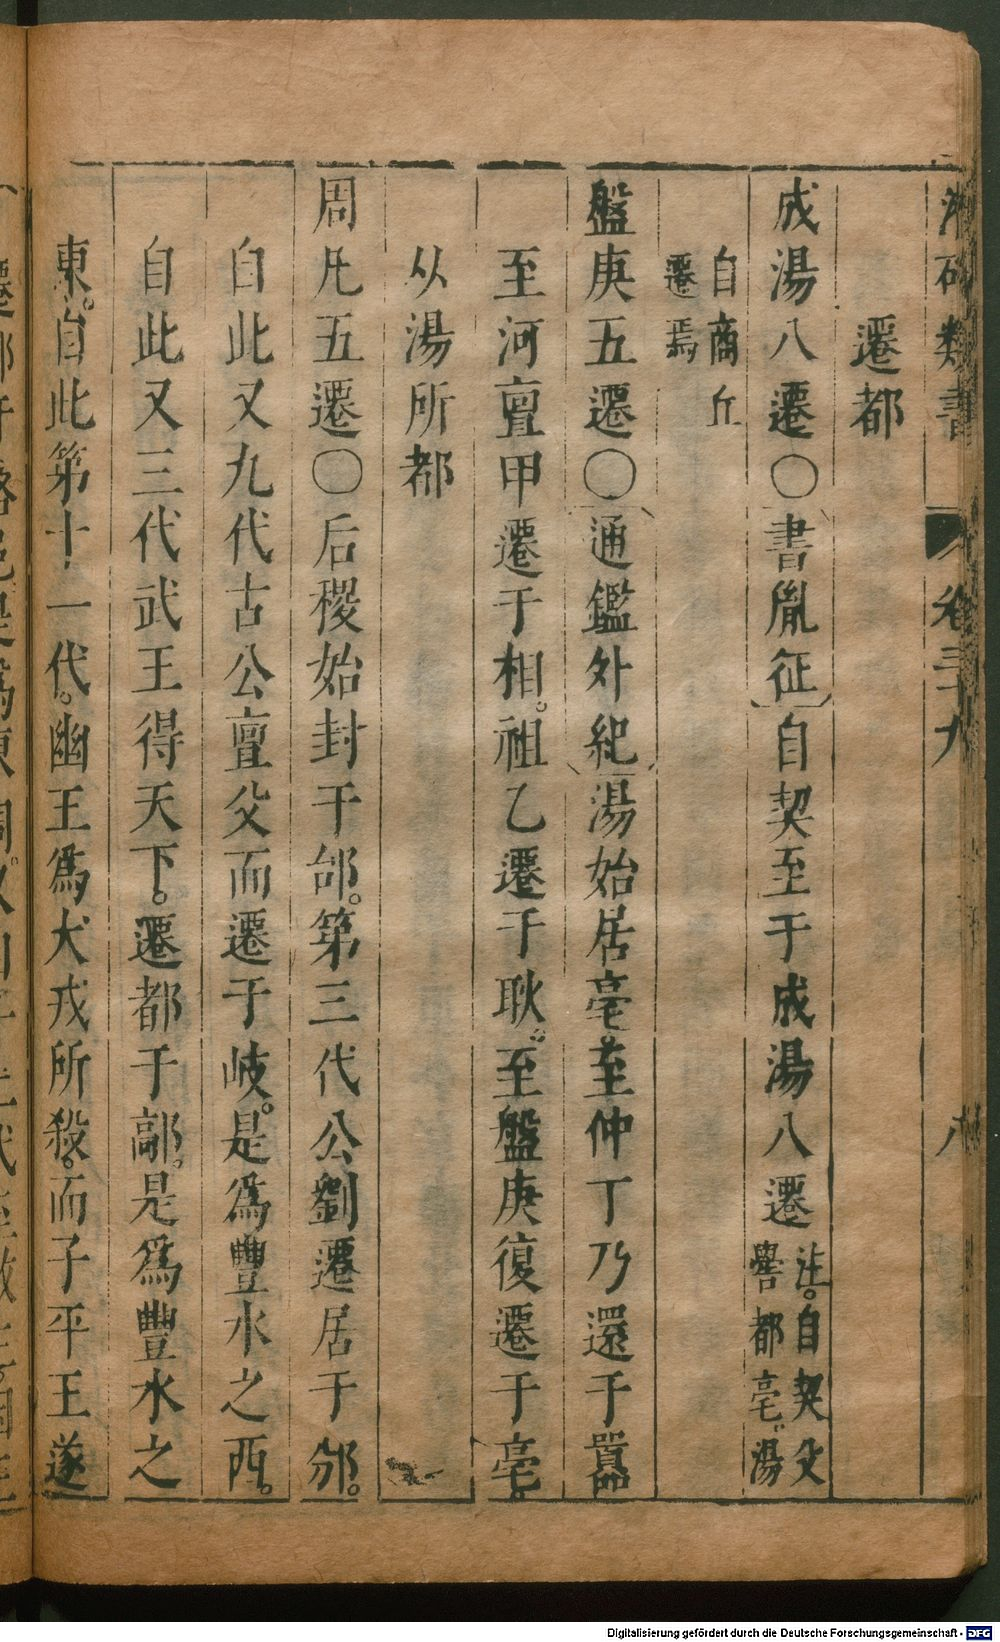 類書 卷三
遷都
成湯八遷○〔書胤征〕自契至于成湯八遷
注。自契父
嚳都亳。湯
自商丘
遷焉
盤庚五遷○〔通鑑外紀〕湯始居亳至仲丁乃還于囂
至河亶甲遷于相。祖乙遷于耿。至盤庚復遷于亳。
从湯所都
周凡五遷○后稷始封于邰。第三代公劉遷居于邠。
自此又九代古公亶父而遷于岐。是爲豐水之西。
自此又三代武王得天下。遷都于鄗。是爲豐水之
東。自此第十一代。幽王爲犬戎所殺。而子平王遂
Digitalisierung gefördert durch die Deutsche Forschungsgemeinschaft - DFG